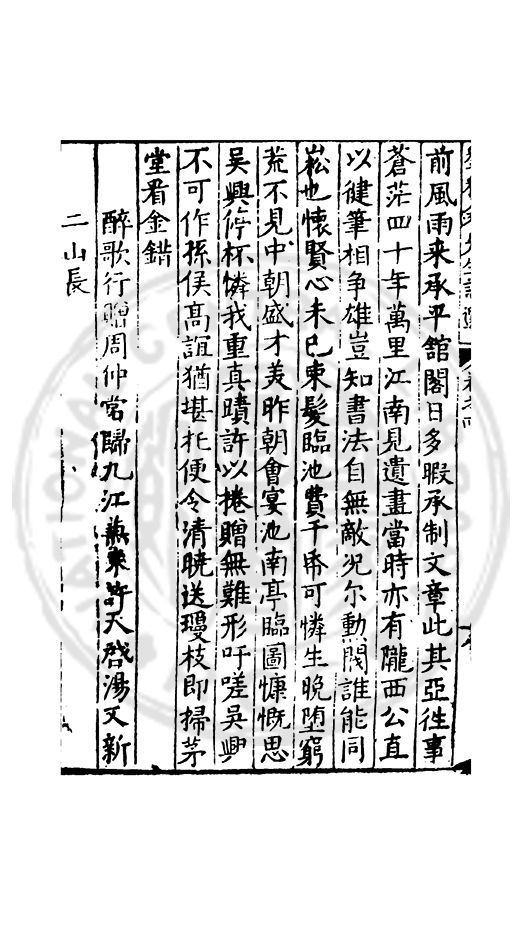 前風雨来承平館閣日多暇承制文章此其亞徃事
蒼茫四十年萬里江南見遺畫當時亦有隴西公直
以健筆相争雄豈知書法自無敵况尔勲閥誰能同
崧也懷賢心未已束髮臨池費千帋可憐生晚堕窮
荒不見中朝盛才美昨朝會宴池南亭臨圖慷慨思
吳興停杯憐我重真蹟許以捲贈無難形吁嗟吳興
不可作孫侯髙誼猶堪托便令清曉送瓊枝即掃茅
堂看金錯
醉歌行贈周仲當歸九江兼柬許天啓湯又新
二山長